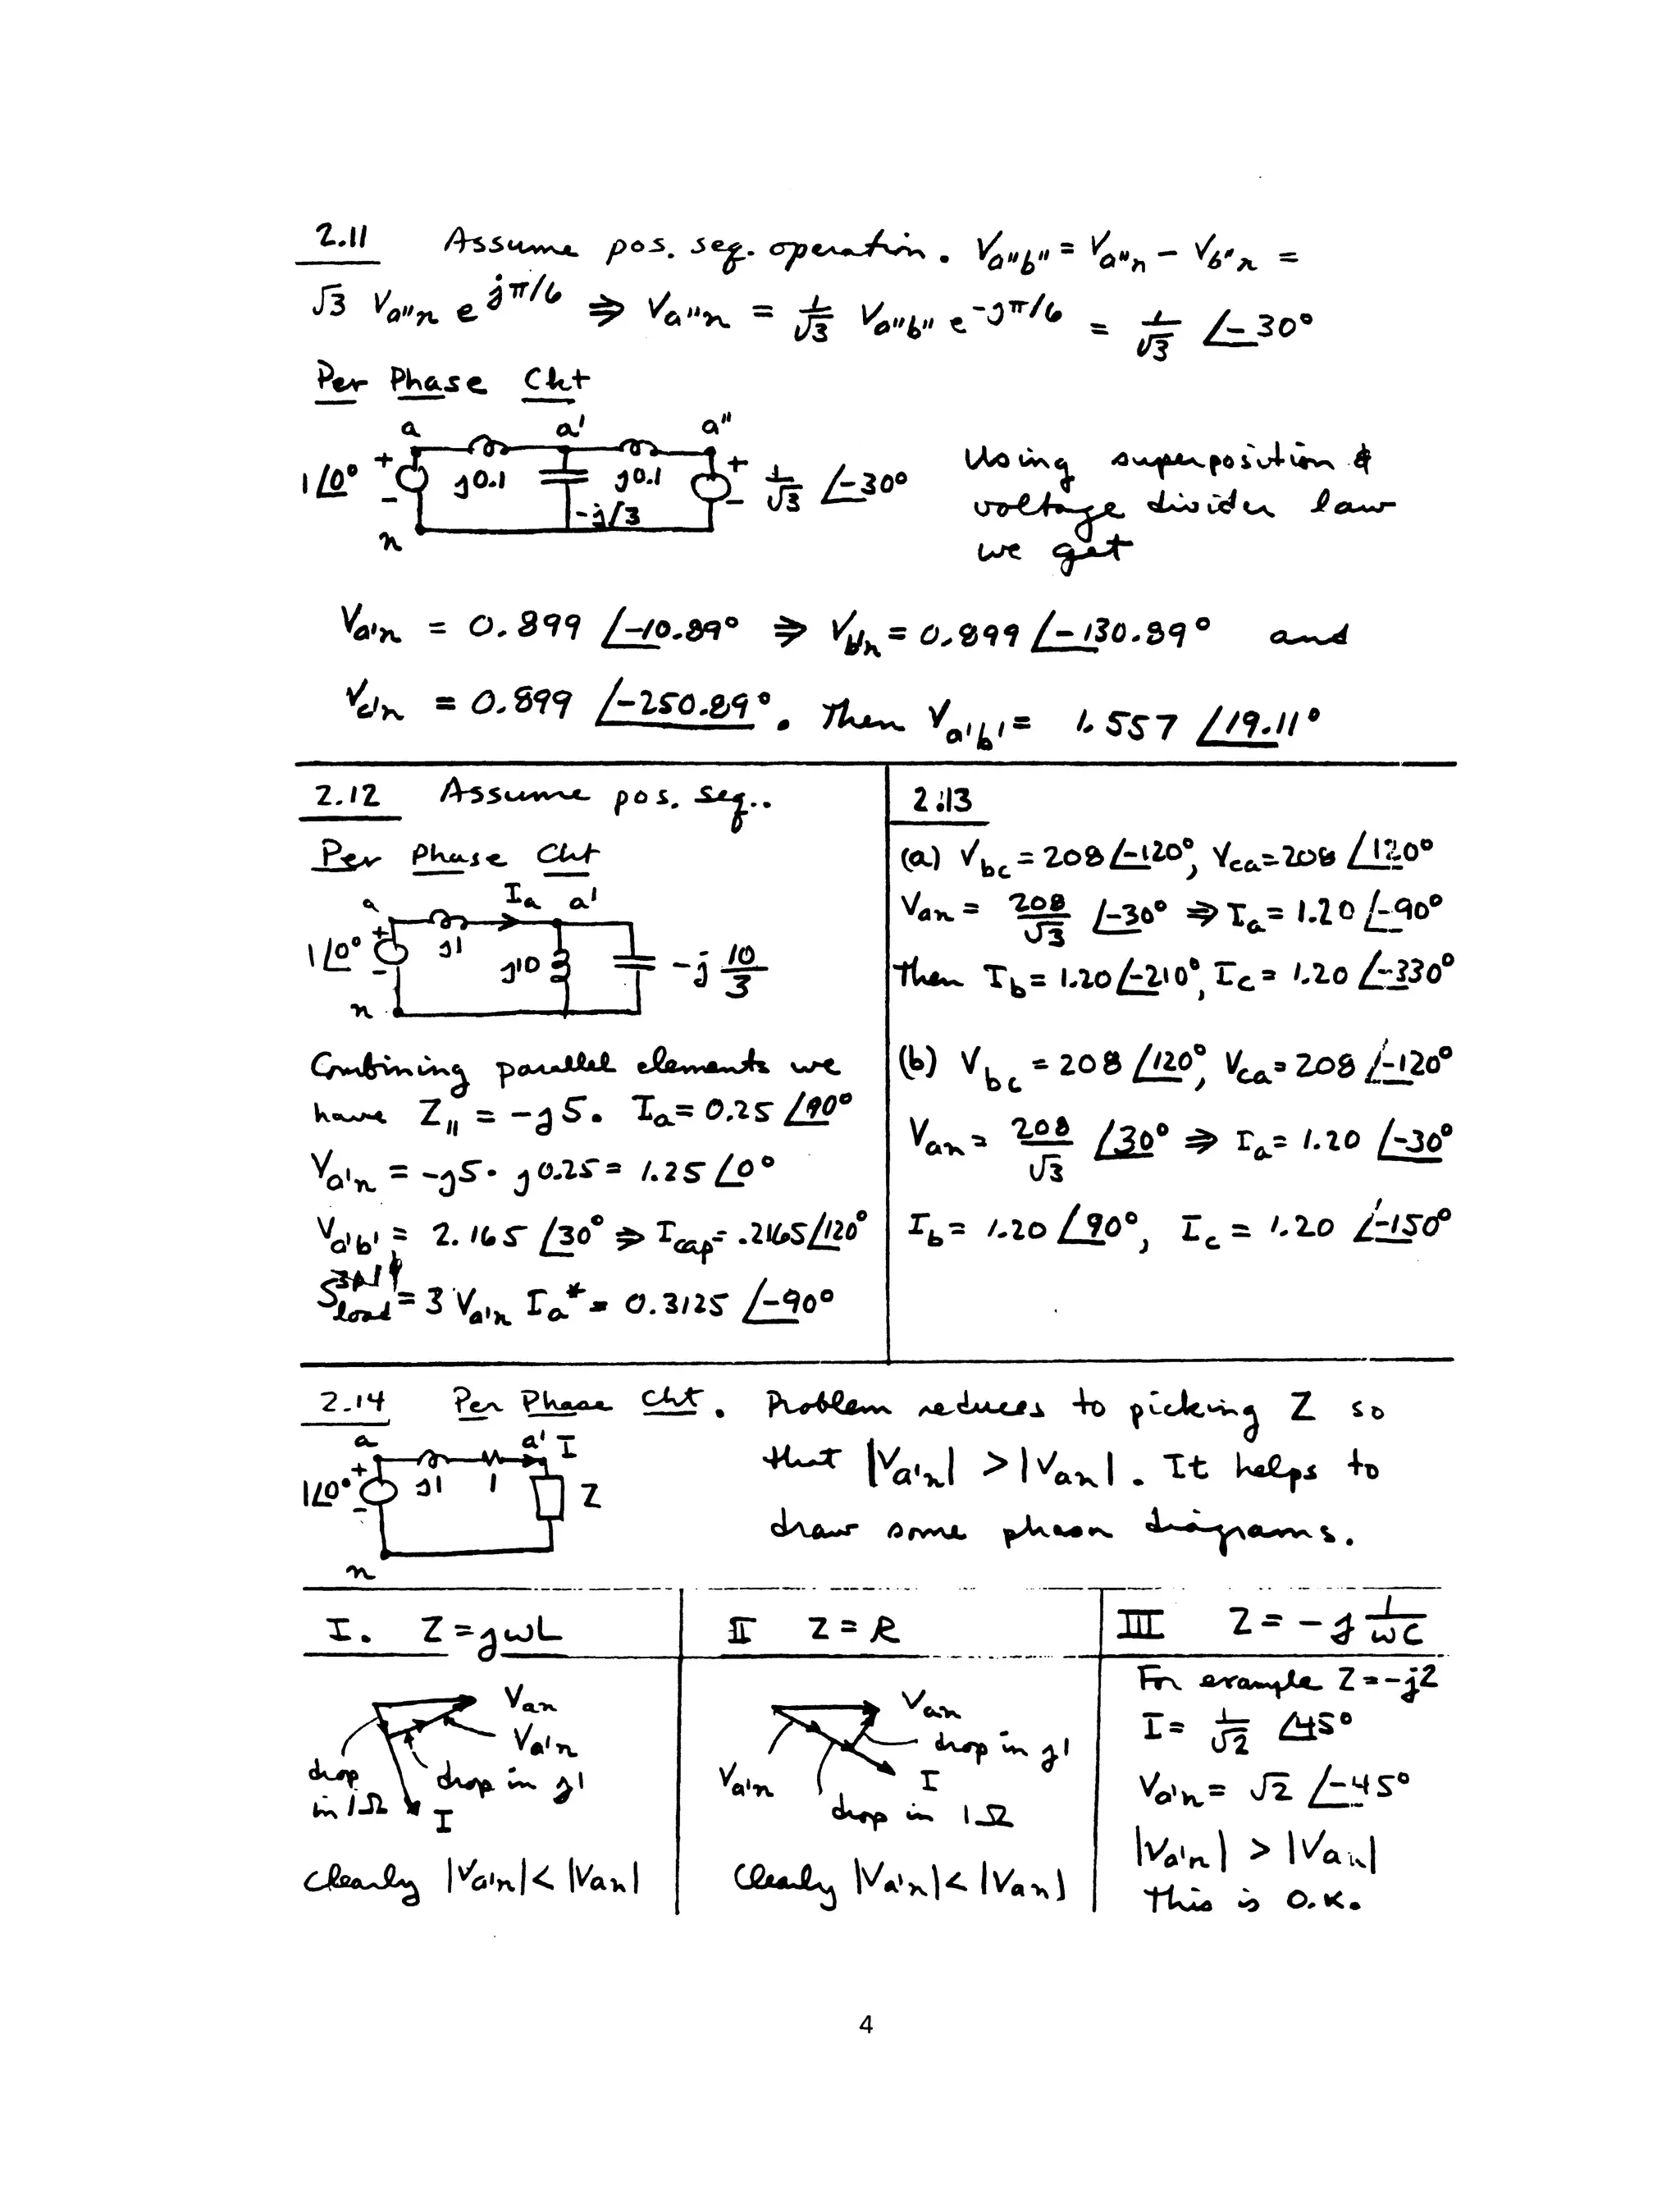 2.11 Assume pos. seq. operation. Va"b" = Va"n − Vb"n =
√3 Va"n e^jπ/6 ⇒ Va"n = 1/√3 Va"b" e^-jπ/6 = 1/√3 ∠-30°
Per Phase Ckt
a a' a"
1∠0° + − j0.1 j0.1 + − 1/√3 ∠-30°
-j/3
n
Using superposition &
voltage divider law
we get
Va'n = 0.899 ∠-10.89° ⇒ Vb'n = 0.899 ∠-130.89° and
Vc'n = 0.899 ∠-250.89°. Then Va'b' = 1.557 ∠19.11°
2.12 Assume pos. seq..
Per Phase Ckt
a Ia a'
1∠0° + − j1 j10 -j 10/3
n
Combining parallel elements we
have Z|| = -j5. Ia = 0.25 ∠90°
Va'n = -j5 · j0.25 = 1.25 ∠0°
Va'b' = 2.165 ∠30° ⇒ Icap = .2165∠120°
Sload^3φ = 3 Va'n Ia* = 0.3125 ∠-90°
2.13
(a) Vbc = 208∠-120°, Vca = 208 ∠120°
Van = 208/√3 ∠-30° ⇒ Ia = 1.20 ∠-90°
Then Ib = 1.20∠-210°, Ic = 1.20 ∠-330°
(b) Vbc = 208 ∠120°, Vca = 208 ∠-120°
Van = 208/√3 ∠30° ⇒ Ia = 1.20 ∠-30°
Ib = 1.20 ∠90°, Ic = 1.20 ∠-150°
2.14 Per Phase Ckt. Problem reduces to picking Z so
that |Va'n| > |Van|. It helps to
draw some phasor diagrams.
a a' I
1∠0° + − j1 1 Z
n
I. Z = jωL
Van
Va'n
drop in 1Ω
drop in j1
I
Clearly |Va'n| < |Van|
II Z = R
Van
drop in j1
Va'n
I
drop in 1Ω
Clearly |Va'n| < |Van|
III Z = -j 1/ωC
For example Z = -j2
I = 1/√2 ∠45°
Va'n = √2 ∠-45°
|Va'n| > |Van|
This is O.K.
4